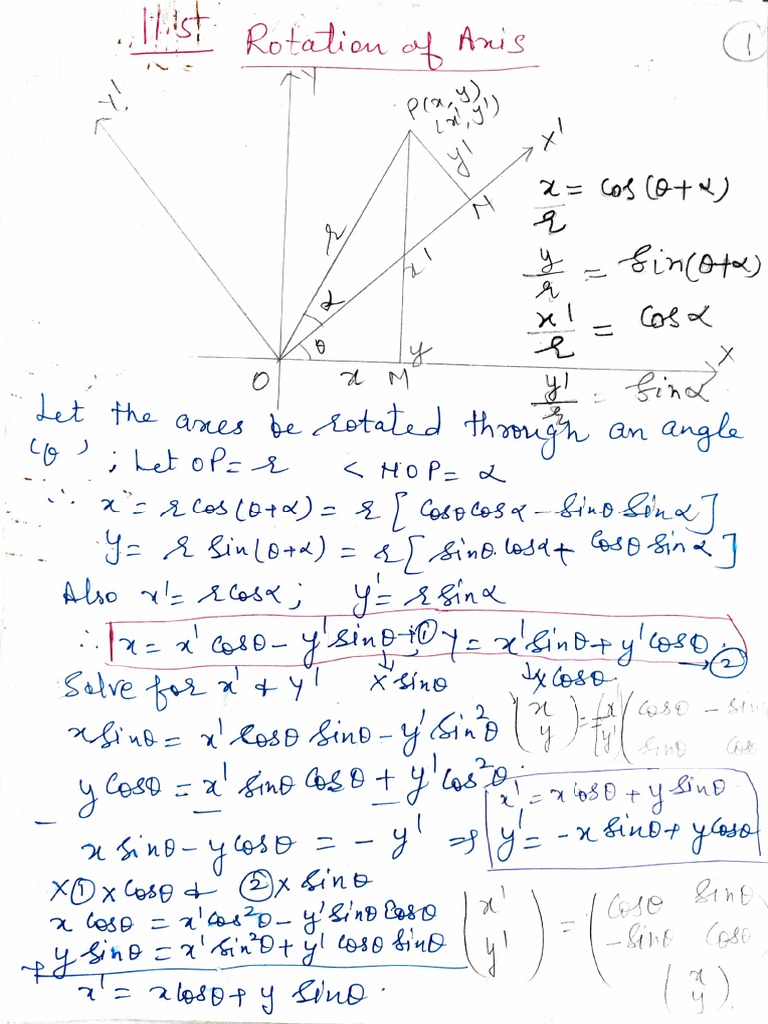 IIIst Rotation of Axis
1
Y'
Y
P(x, y)
(x', y')
y'
X'
N
r
x'
α
θ
y
X
O
x
M
x/r = cos(θ+α)
y/r = Sin(θ+α)
x'/r = cosα
y'/r = Sinα
Let the axes be rotated through an angle
'θ' ; Let OP = r < NOP = α
∴ x = r cos(θ+α) = r [cosθ cosα - Sinθ Sinα]
y = r Sin(θ+α) = r [sinθ.cosα + Cosθ sinα]
Also x' = r cosα; y' = r sinα
∴ x = x' cosθ - y' sinθ → ① y = x' sinθ + y' cosθ. → ②
↓ x sinθ ↓ x cosθ
Solve for x' & y'
x Sinθ = x' Cosθ Sinθ - y' Sin²θ
y Cosθ = x' Sinθ Cosθ + y' Cos²θ.
x Sinθ - y Cosθ = - y' ⇒
x' = x Cosθ + y Sinθ
y' = -x Sinθ + y Cosθ
(x y) = (x' y') (Cosθ - Sin Sinθ Cos
X ① x Cosθ & ② x Sinθ
x Cosθ = x' Cos²θ - y' Sinθ Cosθ
+ y Sinθ = x' Sin²θ + y' Cosθ Sinθ
x' = x Cosθ + y Sinθ.
(x' y') = (Cosθ Sinθ -Sinθ Cosθ
(x y)